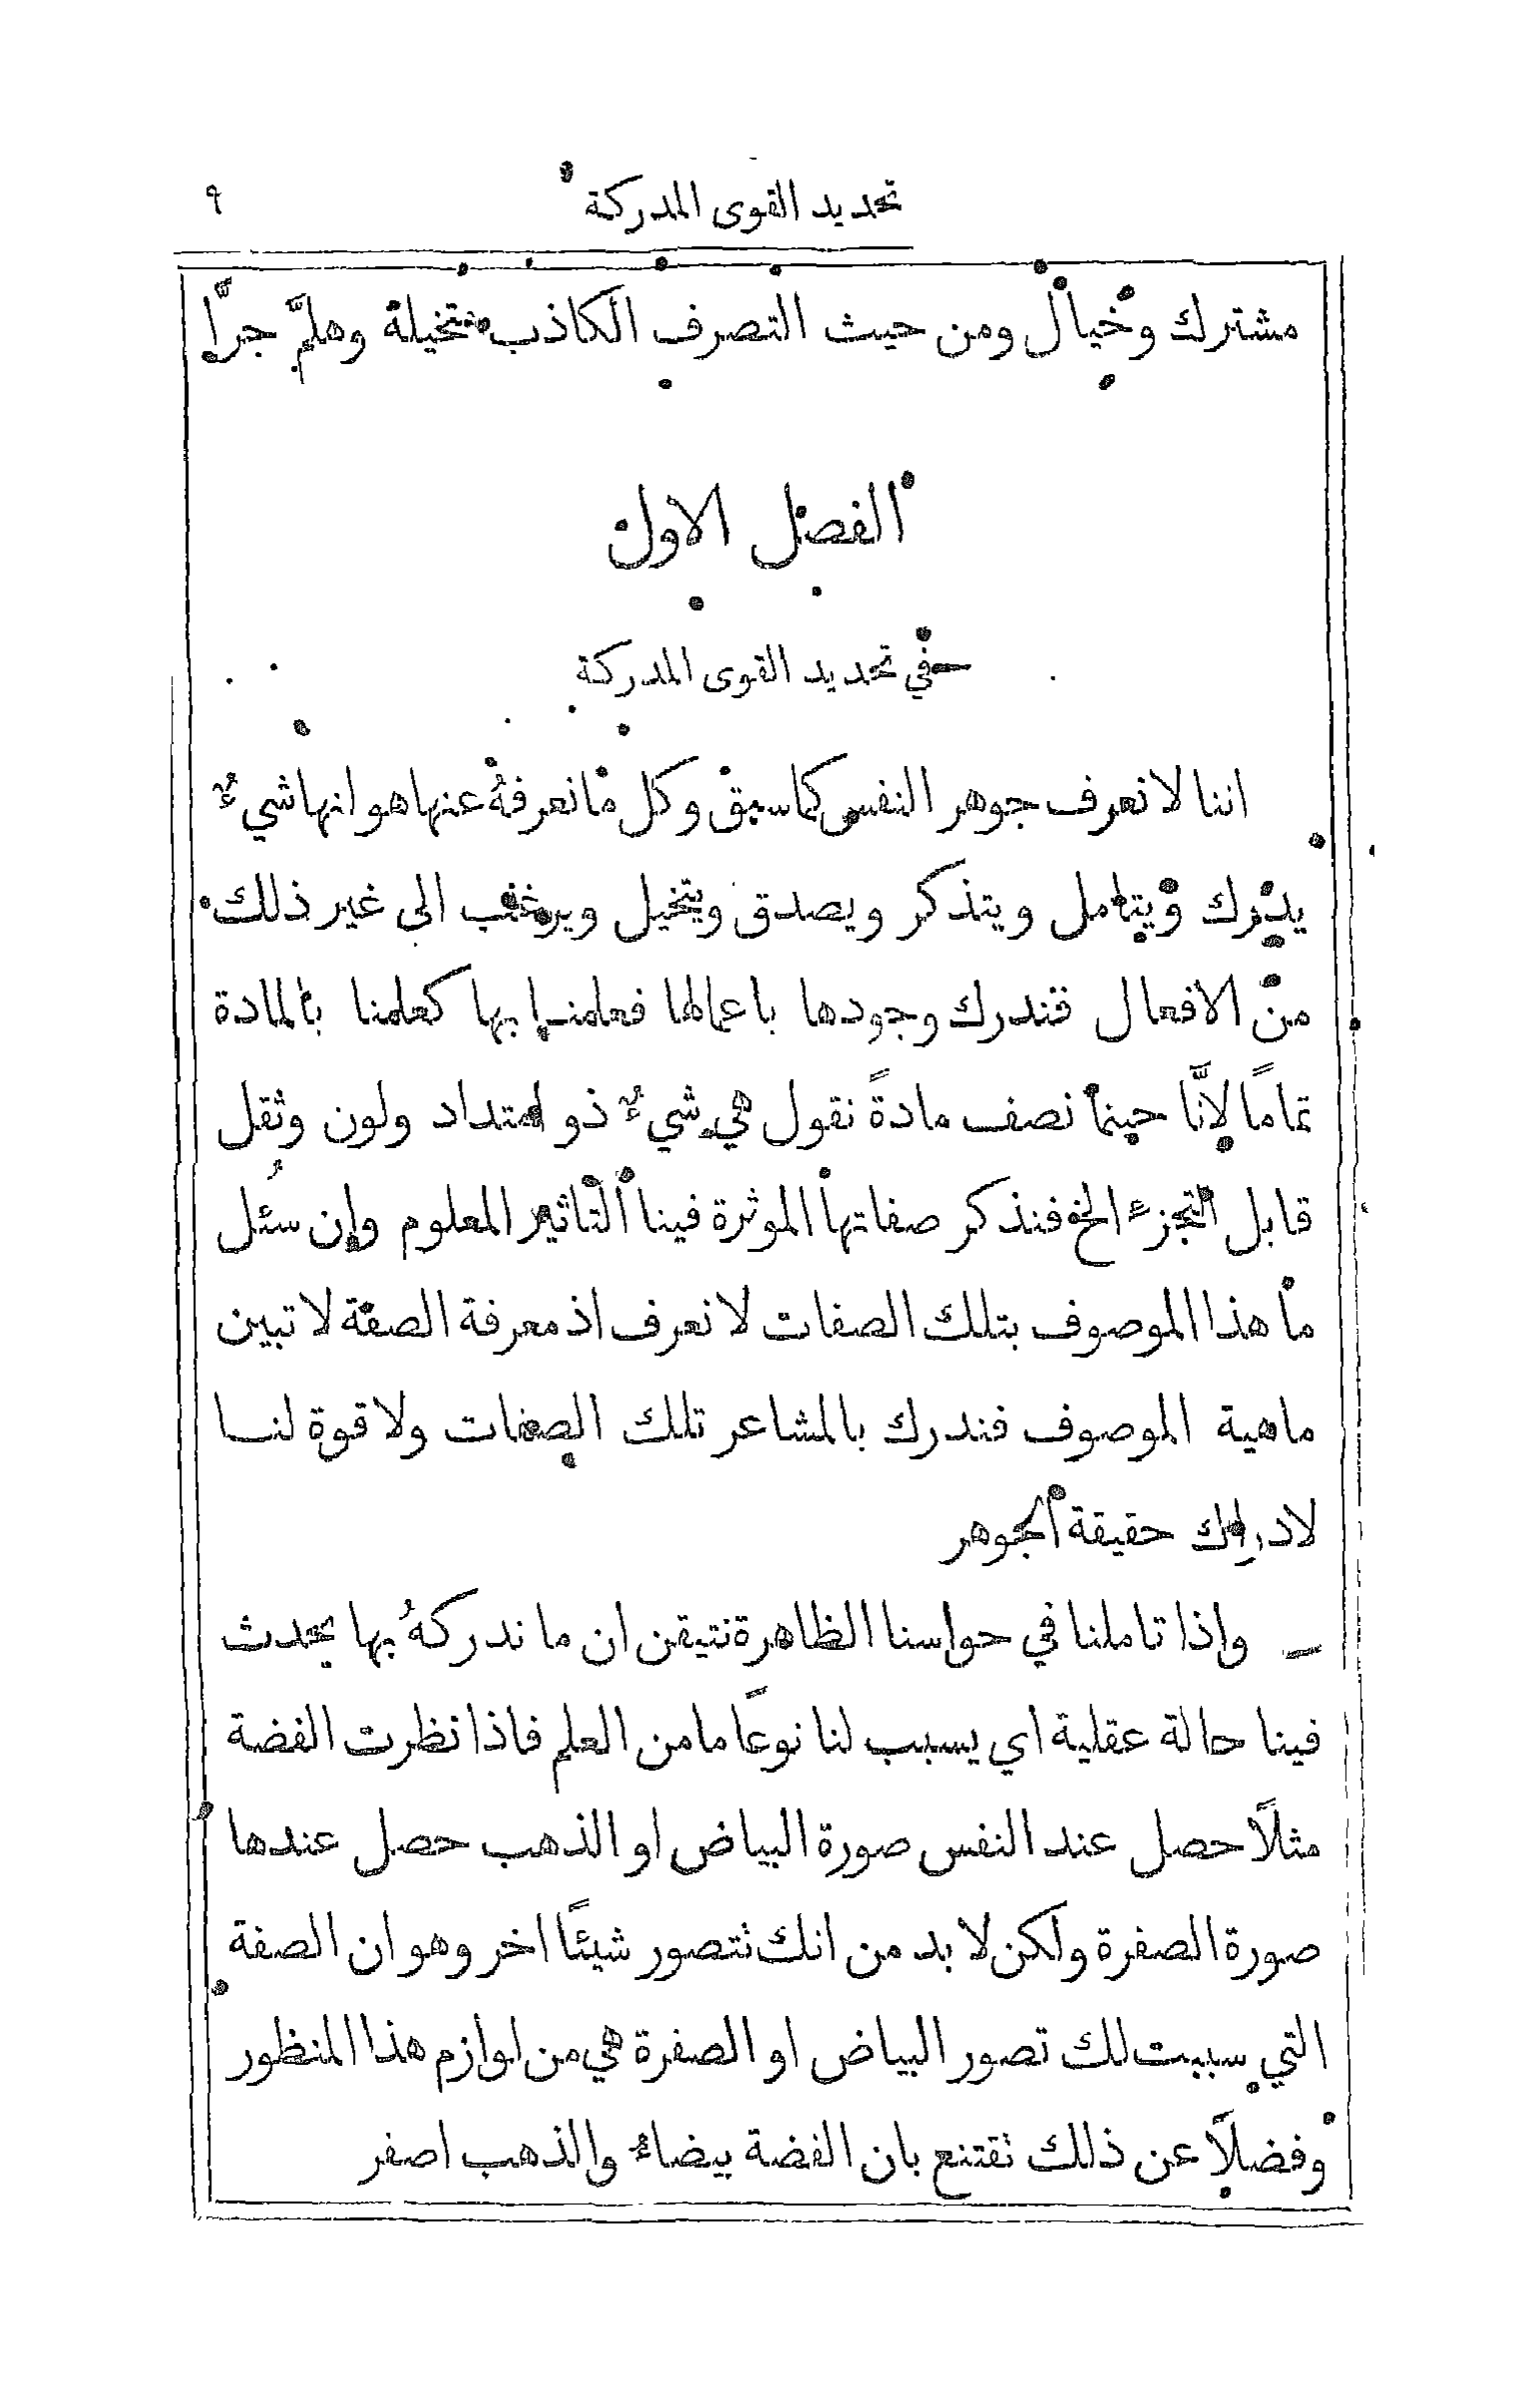 تحديد القوى المدركة ٩
مشترك وخيال ومن حيث التصرف الكاذب متخيلة وهلمَّ جرًّا
الفصل الاول
في تحديد القوى المدركة
اننا لا نعرف جوهر النفس كما سبق وكل ما نعرفهُ عنها هو انها شيءٌ
يدرك ويتامل ويتذكر ويصدق ويتخيل ويرغب الى غير ذلك
من الافعال فندرك وجودها باعمالها فعلمنا بها كعلمنا بالمادة
تمامًا لانَّا حينما نصف مادةً نقول هي شيءٌ ذو امتداد ولون وثقل
قابل التجزء الخ فنذكر صفاتها الموثرة فينا التاثير المعلوم وإن سُئل
ما هذا الموصوف بتلك الصفات لا نعرف اذ معرفة الصفة لا تبين
ماهية الموصوف فندرك بالمشاعر تلك الصفات ولا قوة لنا
لادراك حقيقة الجوهر
— واذا تاملنا في حواسنا الظاهرة نتيقن ان ما ندركهُ بها يحدث
فينا حالة عقلية اي يسبب لنا نوعًا ما من العلم فاذا نظرت الفضة
مثلًا حصل عند النفس صورة البياض او الذهب حصل عندها
صورة الصفرة ولكن لا بد من انك تتصور شيئًا اخر وهو ان الصفة
التي سببت لك تصور البياض او الصفرة هي من لوازم هذا المنظور
وفضلًا عن ذلك تقتنع بان الفضة بيضاء والذهب اصفر